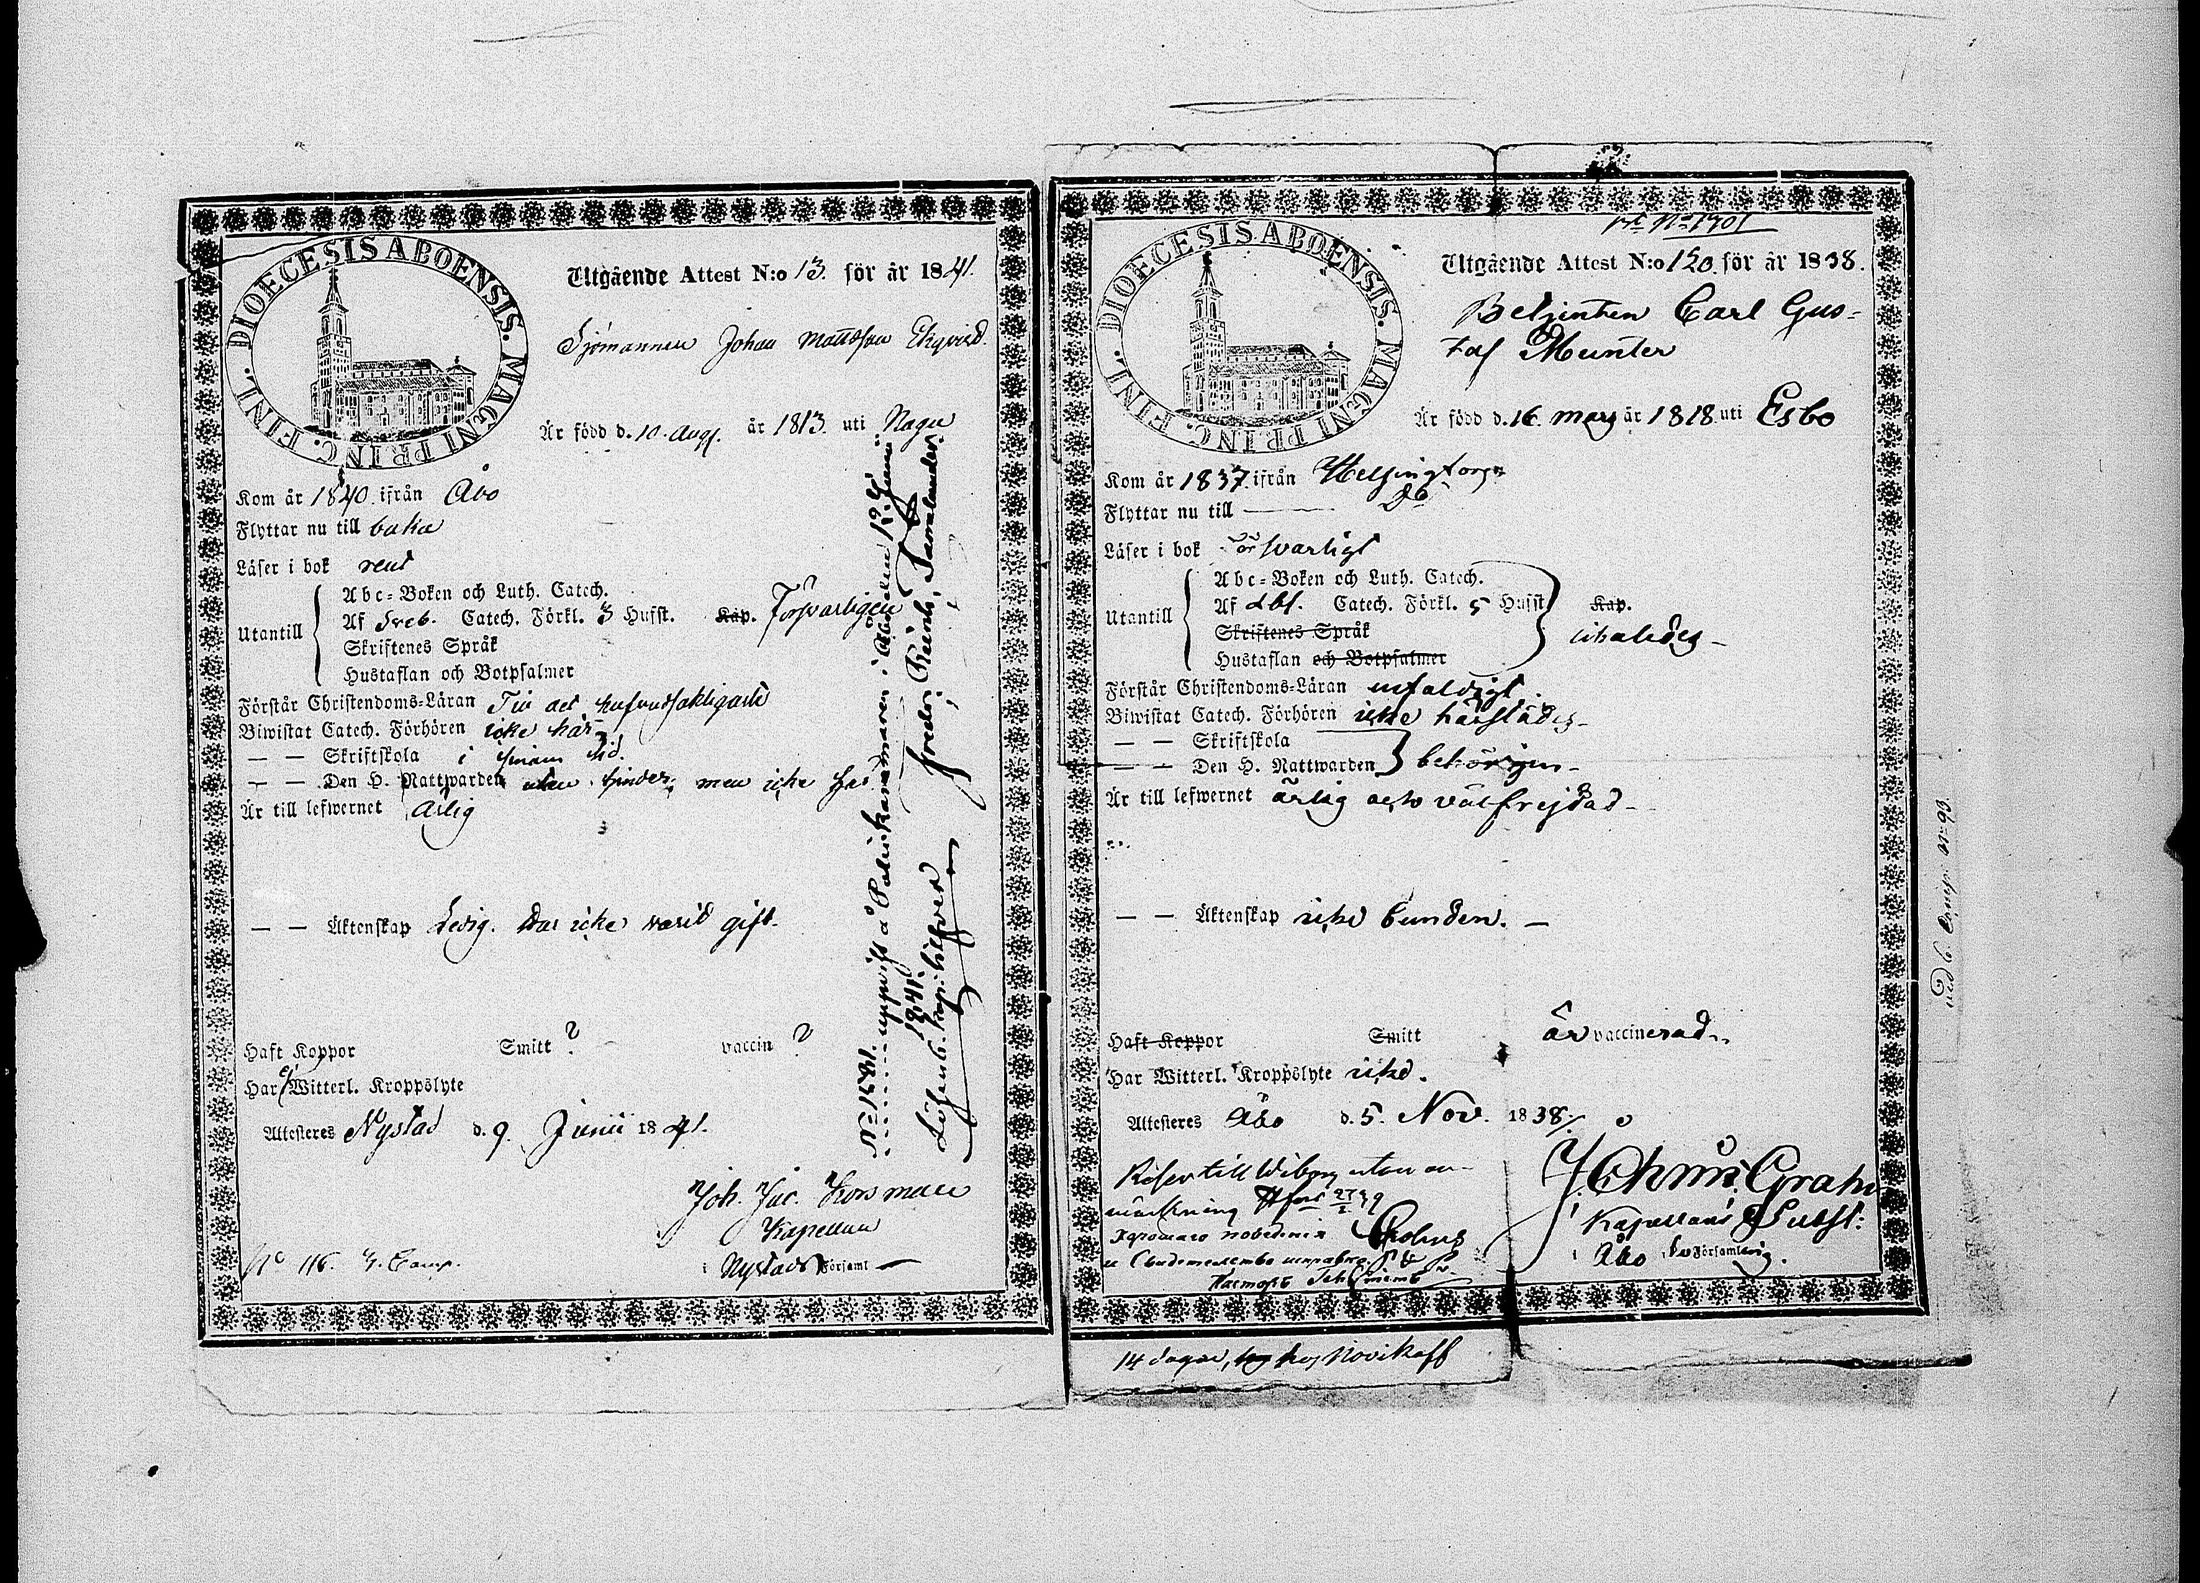 DIOECESIS ABOENSIS. MAGNI PRINC. FINL.
Utgående Attest N:o 13. för år 1841.
Sjömannen Johan Mattsson Ekqvist.
Är född d. 10. Augs. år 1813. uti Nagu
Kom år 1840. ifrån Åbo
Flyttar nu till baka
Läser i bok rent
Utantill
Abc-Boken och Luth. Catech.
Af Sveb. Catech. Förkl. 3 Hufst. Kap. Försvarligen
Skriftenes Språk
Hustaflan och Botpsalmer
Förstår Christendoms-Läran Till det hufvudsakligaste
Biwistat Catech. Förhören icke här
— — Skriftskola i sinom tid.
— — Den H. Nattwarden utan hinder, men icke här
Är till lefwernet Ärlig
— — Äktenskap Ledig. Har icke varit gift.
Haft Koppor Smitt ? vaccin ?
Har ej Witterl. Kroppslyte
Attesteres Nystad d. 9. Junii 1841.
Joh. Jac. Korsman
Kapellan
i Nystads Församl
No 116. Comp.
No 1531. uppvist å Poliskammaren i Åbo den 19 Junii
1841.
Fredr. Reinh. Sammlander.
DIOECESIS ABOENSIS. MAGNI PRINC. FINL.
No 1701
Utgående Attest N:o 120. för år 1838.
Betjenten Carl Gus-
taf Munter
Är född d. 16. mars år 1818 uti Esbo
Kom år 1837. ifrån Helsingfors
Flyttar nu till — Do
Läser i bok försvarligt
Utantill
Abc-Boken och Luth. Catech.
Af Catech. Förkl. 5 Hufst Kap.
Skriftenes Språk
likaledes
Hustaflan och Botpsalmer
Förstår Christendoms-Läran enfaldigt.
Biwistat Catech. Förhören icke härstädes
— — Skriftskola
— — Den H. Nattwarden behörigen
Är till lefwernet ärlig och välfrejdad
— — Äktenskap icke bunden.
Haft Koppor Smitt är vaccinerad.
Har Witterl. Kroppslyte icke.
Attesteres Åbo d. 5. Nov. 1838.
J. Chr. Grahn
Kapellans Subst:
i Åbo Sv Församling.
Reser till Wiborg utan an-
märkning Hfors 27/2 39
хорошаго поведенія
и Свидетельство
Пасторъ
14 dagar, hos Novikoff